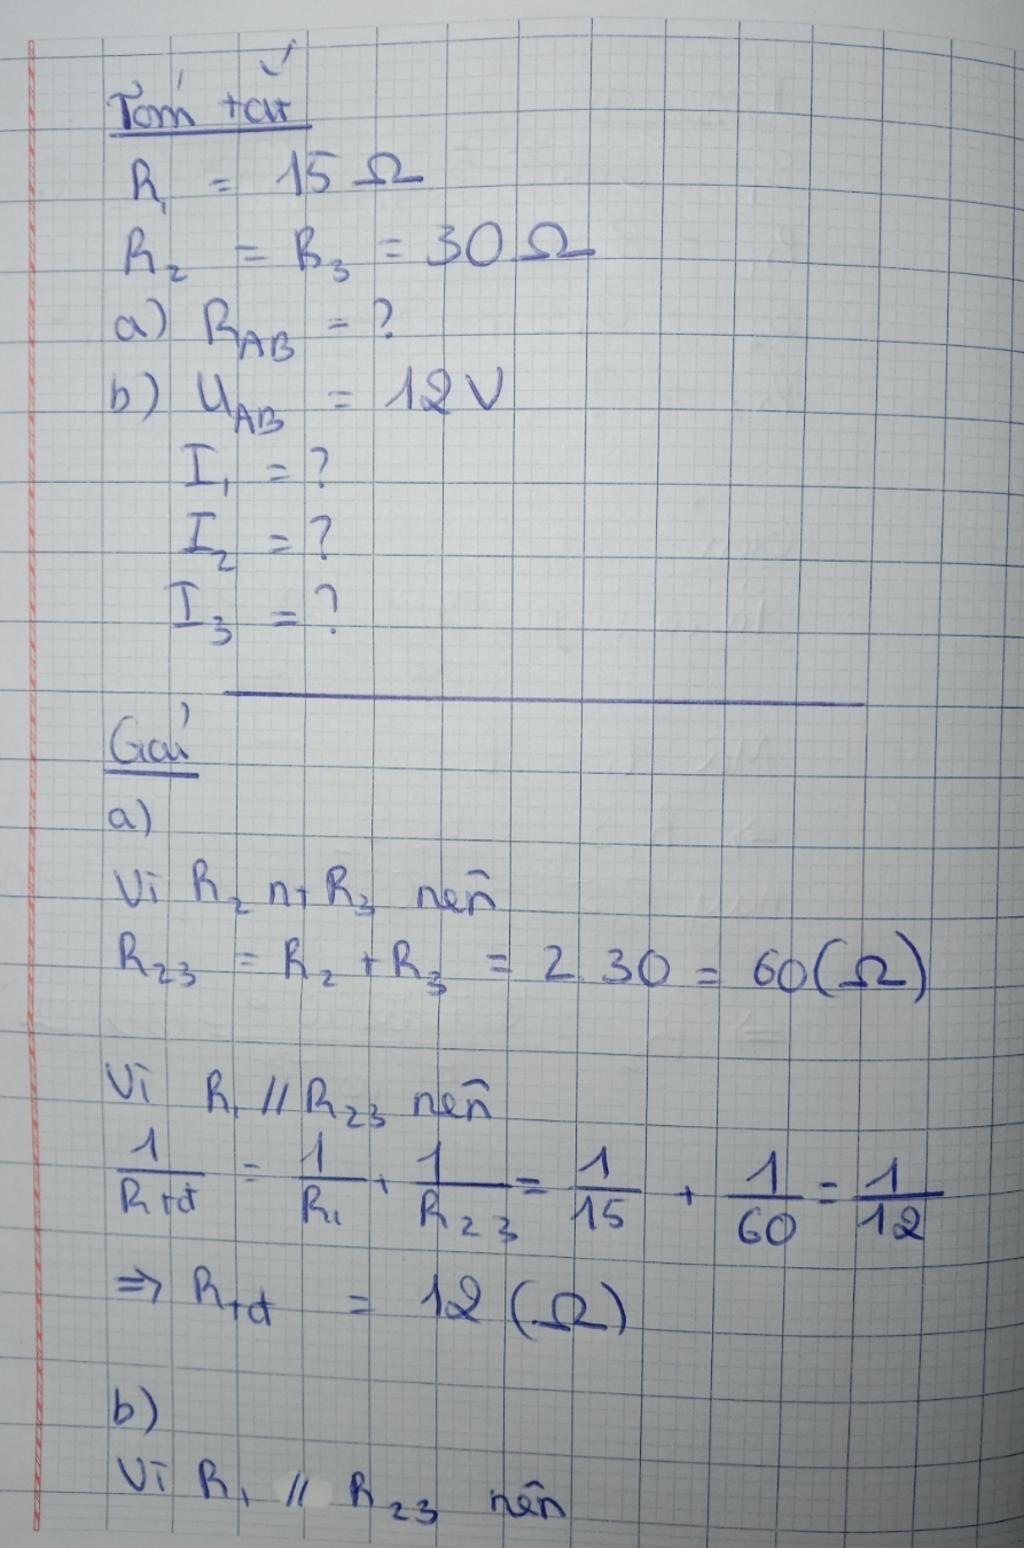 Tóm tắt
R₁ = 15 Ω
R₂ = R₃ = 30 Ω
a) R_AB = ?
b) U_AB = 12 V
I₁ = ?
I₂ = ?
I₃ = ?
Giải
a)
Vì R₂ nt R₃ nên
R₂₃ = R₂ + R₃ = 2.30 = 60 (Ω)
Vì R₁ // R₂₃ nên
1/R_tđ = 1/R₁ + 1/R₂₃ = 1/15 + 1/60 = 1/12
⇒ R_tđ = 12 (Ω)
b)
Vì R₁ // R₂₃ nên